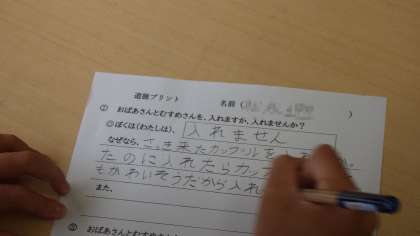 道徳プリント 名前( )
① おばあさんとむすめさんを、入れますか、入れませんか?
◎ぼくは(わたしは)、入れません
なぜなら、さっき来たカップルを
たのに入れたらカッ
もかわいそうだから入れ
また、
② おばあさんとむすめさ